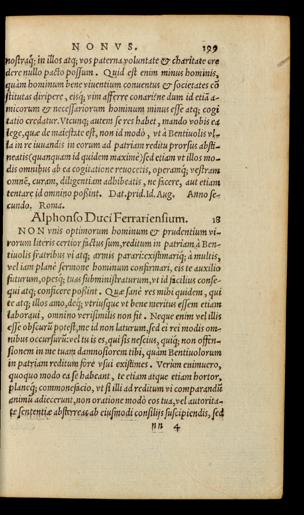 NONVS. 199
nostraq́; in illos atq; vos paterna voluntate & charitate cre
dere nullo pacto possum. Quid est enim minus hominis,
quàm hominum bene viuentium conuentus & societates cō
stitutas diripere, eisq; vim afferre conari? ne dum id etiā a-
micorum & necessariorum hominum minus esse atq; cogi
tatio credatur. Vtcunq; autem se res habet, mando vobis ea
lege, quæ de maiestate est, non id modò, vt à Bentiuolis vl-
la in re iuuandis in eorum ad patriam reditu prorsus absti-
neatis (quanquam id quidem maximè) sed etiam vt illos mo-
dis omnibus ab ea cogitatione reuocetis, operamq́; vestram
omnē, curam, diligentiam adhibeatis, ne facere, aut etiam
tentare id omnino possint. Dat. prid. id. Aug. Anno se-
cundo, Roma.
Alphonso Duci Ferrariensium. 18
NON vnis optimorum hominum & prudentium vi-
rorum literis certior factus sum, reditum in patriam à Ben-
tiuolis fratribus vi atq; armis parari: existimariq́; à multis,
vel iam planè sermone hominum confirmari, eis te auxilio
futurum, opesq́; tuas subministraturum, vt id facilius conse-
qui atq; conficere possint. Quæ sanè res mihi quidem, qui
te atq; illos amo, deq́; vtriusque vt bene meritus essem etiam
laboraui, omnino verisimilis non fit. Neque enim vel illis
esse obscurū potest, me id non laturum, sed ei rei modis om-
nibus occursurū: vel tu is es, qui sis nescius, quiq́; non offen-
sionem in me tuam damnosiorem tibi, quàm Bentiuolorum
in patriam reditum fore vsui existimes. Verùm enimuero,
quoquo modo ea se habeant, te etiam atque etiam hortor,
planeq́; commonefacio, vt si illi ad reditum vi comparandū
animū adiecerunt, non oratione modò eos tua, vel autorita-
te sententiæ abstrreas ab eiusmodi consilijs suscipiendis, sed
nn 4